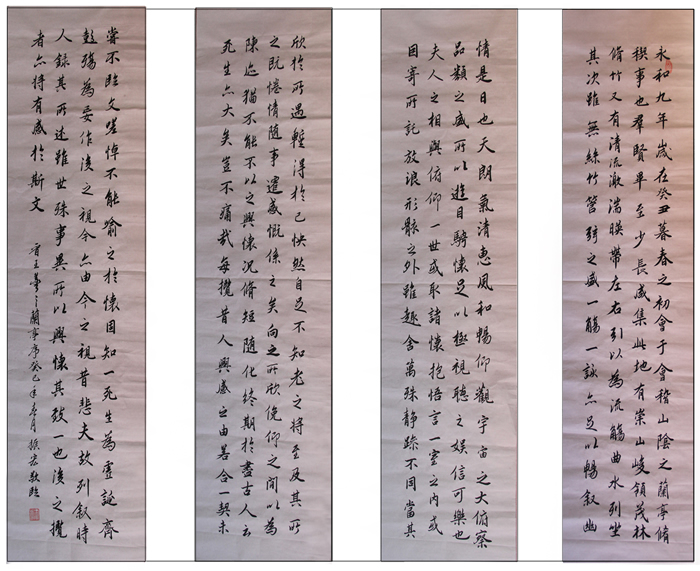 永和九年歲在癸丑暮春之初會于會稽山陰之蘭亭脩
禊事也羣賢畢至少長咸集此地有崇山峻領茂林
脩竹又有清流激湍暎帶左右引以為流觴曲水列坐
其次雖無絲竹管弦之盛一觴一詠亦足以暢叙幽
情是日也天朗氣清惠風和暢仰觀宇宙之大俯察
品類之盛所以遊目騁懷足以極視聽之娛信可樂也
夫人之相與俯仰一世或取諸懷抱悟言一室之內或
因寄所託放浪形骸之外雖趣舍萬殊靜躁不同當其
欣於所遇暫得於己怏然自足不知老之將至及其所
之既惓情隨事遷感慨係之矣向之所欣俛仰之間以為
陳迹猶不能不以之興懷況脩短隨化終期於盡古人云
死生亦大矣豈不痛哉每攬昔人興感之由若合一契未
嘗不臨文嗟悼不能喻之於懷固知一死生為虛誕齊
彭殤為妄作後之視今亦由今之視昔悲夫故列叙時
人録其所述雖世殊事異所以興懷其致一也後之攬
者亦將有感於斯文 晉王羲之蘭亭序癸巳年春月敬臨